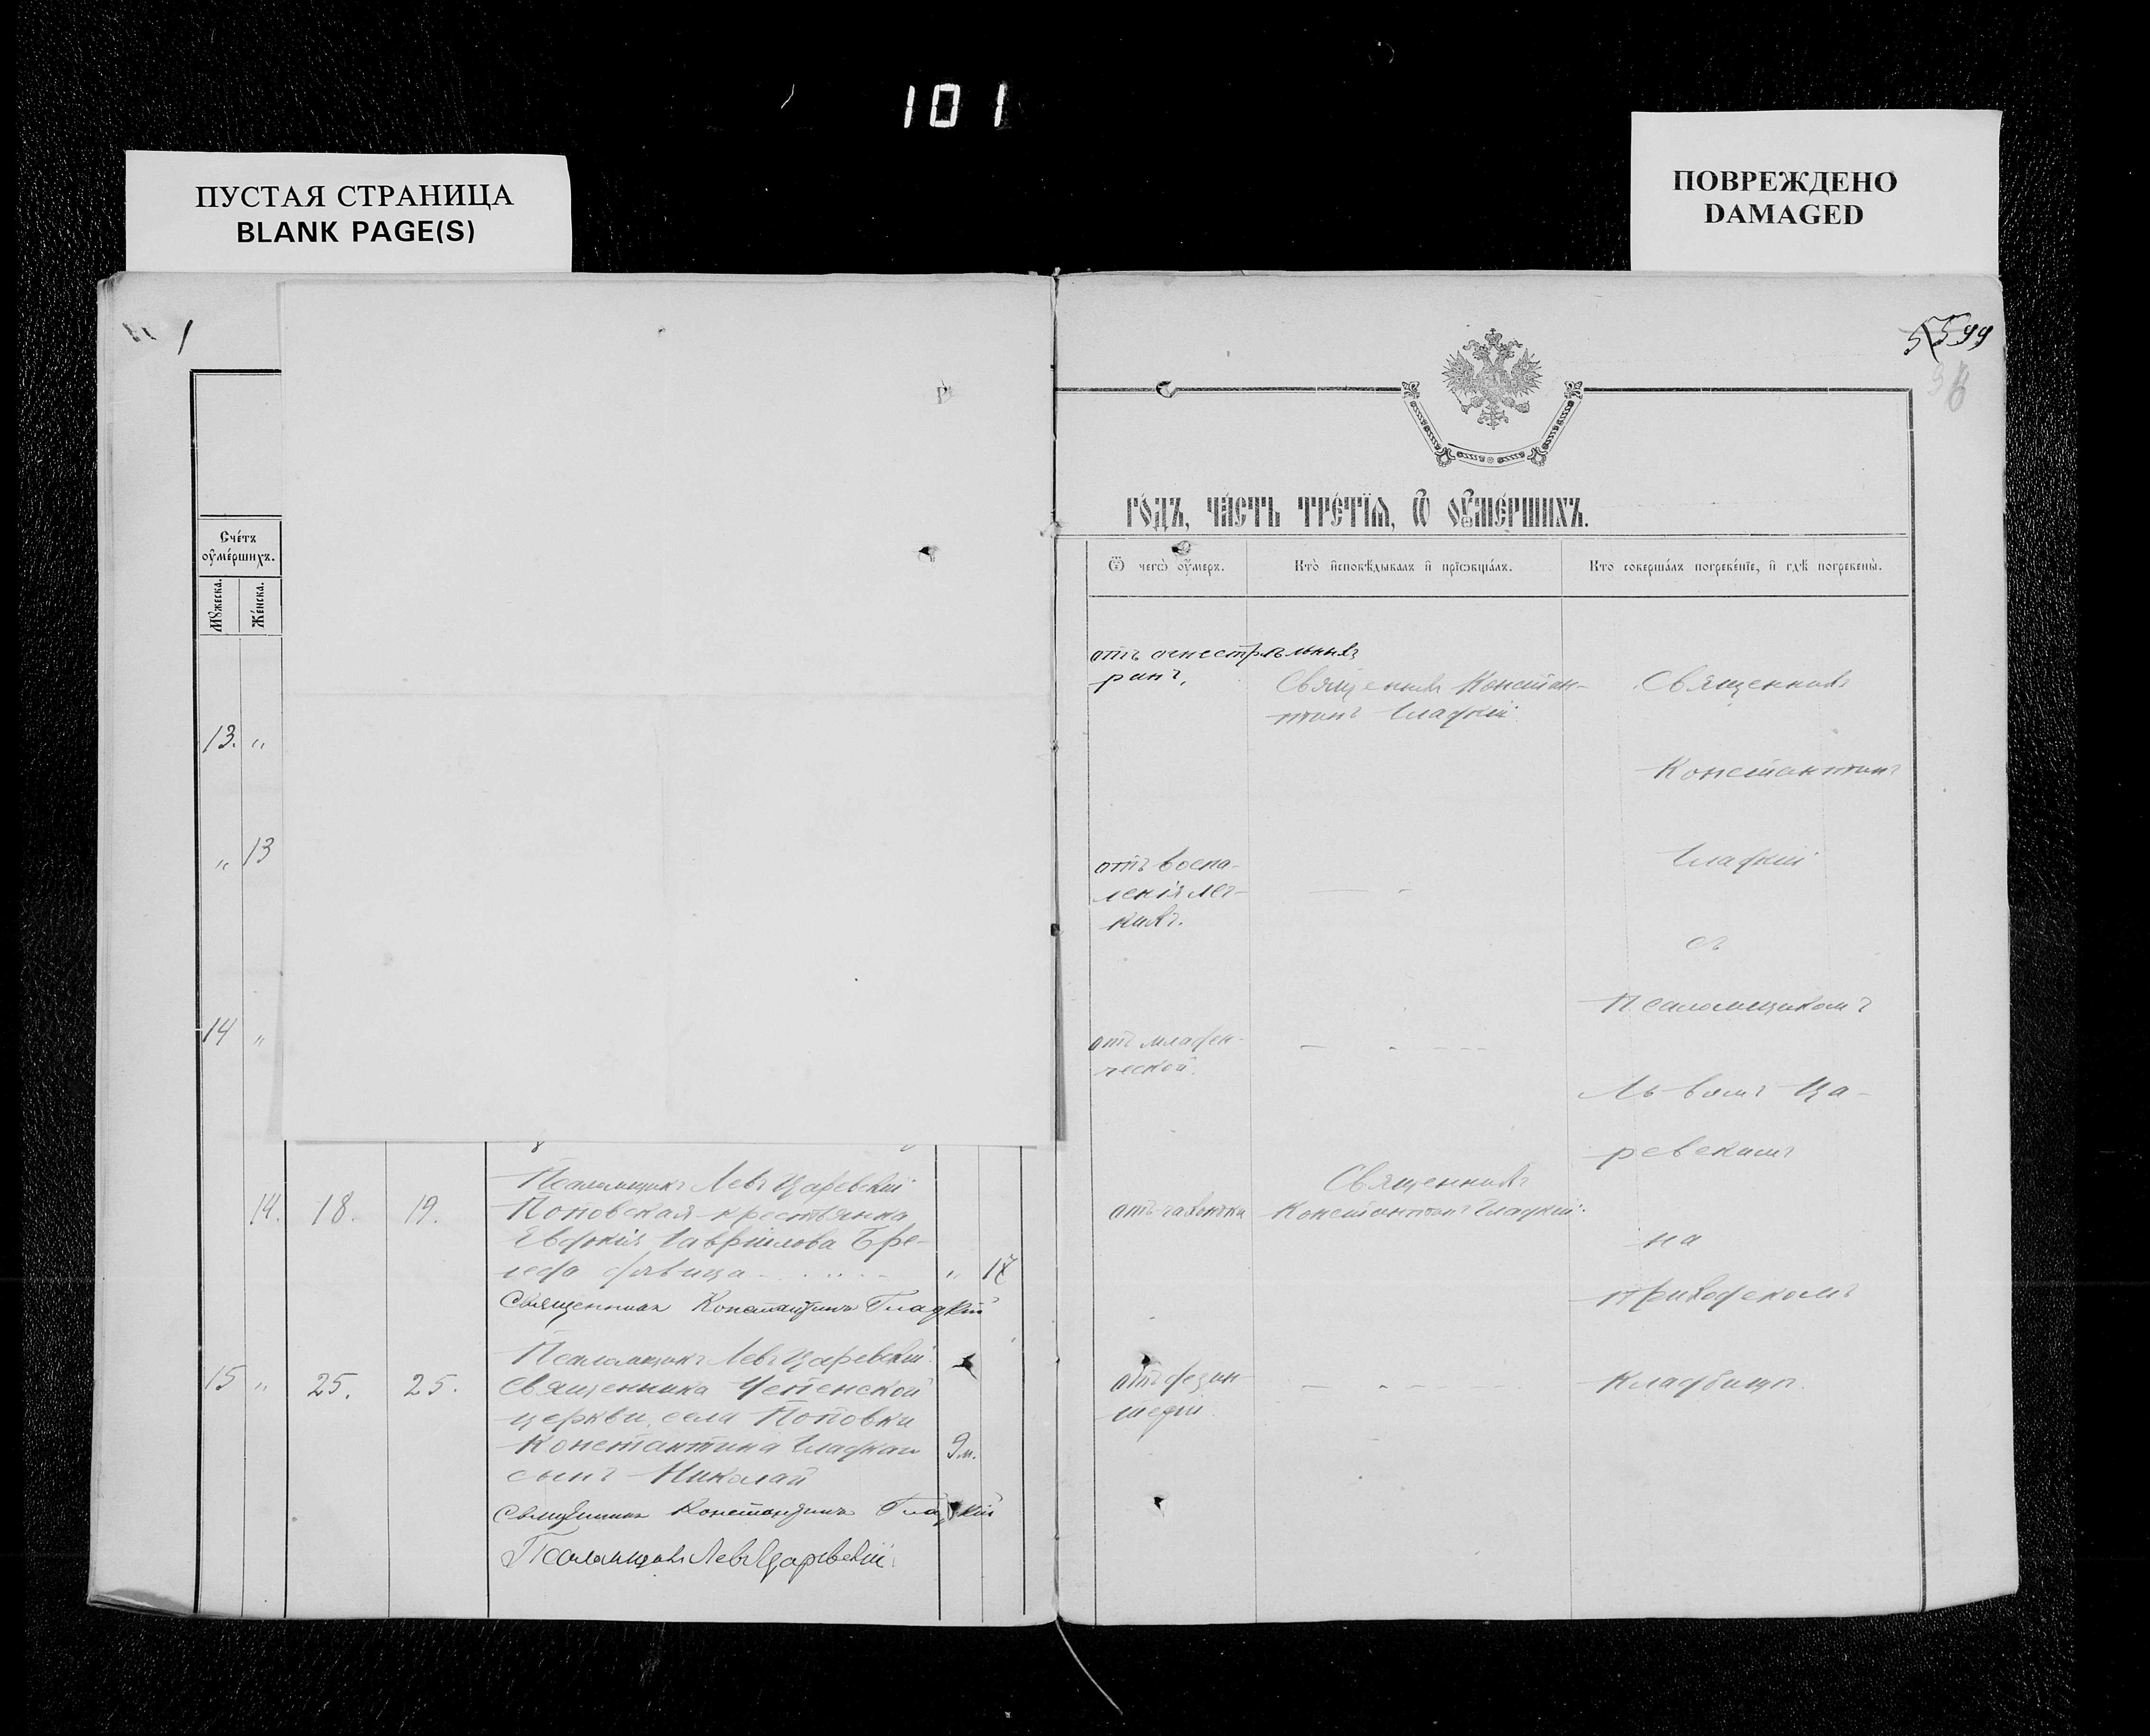 101
ПУСТАЯ СТРАНИЦА
BLANK PAGE(S)
ПОВРЕЖДЕНО
DAMAGED
Счетъ
оумершихъ.
Мужеска.
Женска.
13. "
" 13
14 "
Псаломщикъ Левъ Царевскій
14. 18. 19. Поповская крестьянка
Евдокія Гаврилова
дѣвица " 17
Священникъ Константинъ Гладкій
Псаломщикъ Левъ Царевскій
15 " 25. 25. Священника Успенской
церкви села Поповки
Константина Гладкаго 9 м.
сынъ Николай
Священникъ Константинъ Гладкій
Псаломщикъ Левъ Царевскій
99
годъ, часть третїѧ, ѡ оумершихъ.
Ѿ чегѡ оумеръ.
Кто исповѣдывалъ и прїѡбщалъ.
Кто совершалъ погребенїе, и гдѣ погребены.
отъ огнестрѣльныхъ
ранъ,
Священникъ Констан-
тинъ Гладкій
Священникъ
Константинъ
Гладкій
съ
Псаломщикомъ
Львомъ Ца-
ревскимъ
на
приходскомъ
кладбищѣ.
отъ воспа-
ленія лег-
кихъ.
отъ младен-
ческой.
отъ чахотки
Священникъ
Константинъ Гладкій.
отъ дезин-
теріи